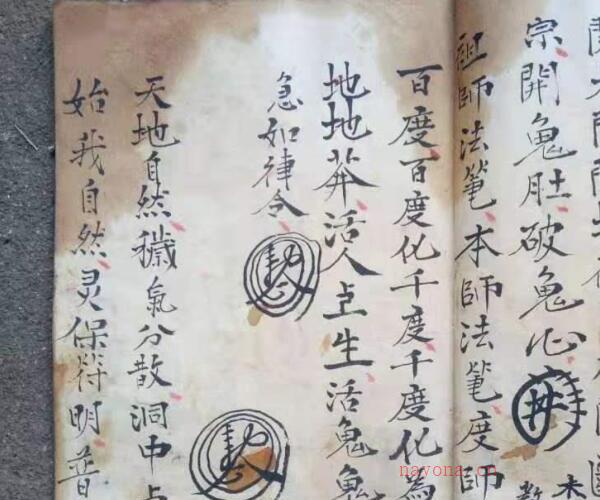 宗開鬼肚破鬼心
祖師法筆本師法筆度師
百度百度化千度千度化為
地地莽活人上生活鬼鬼
急如律令
天地自然穢氣分散洞中
始我自然灵保符明普
nayona.cn